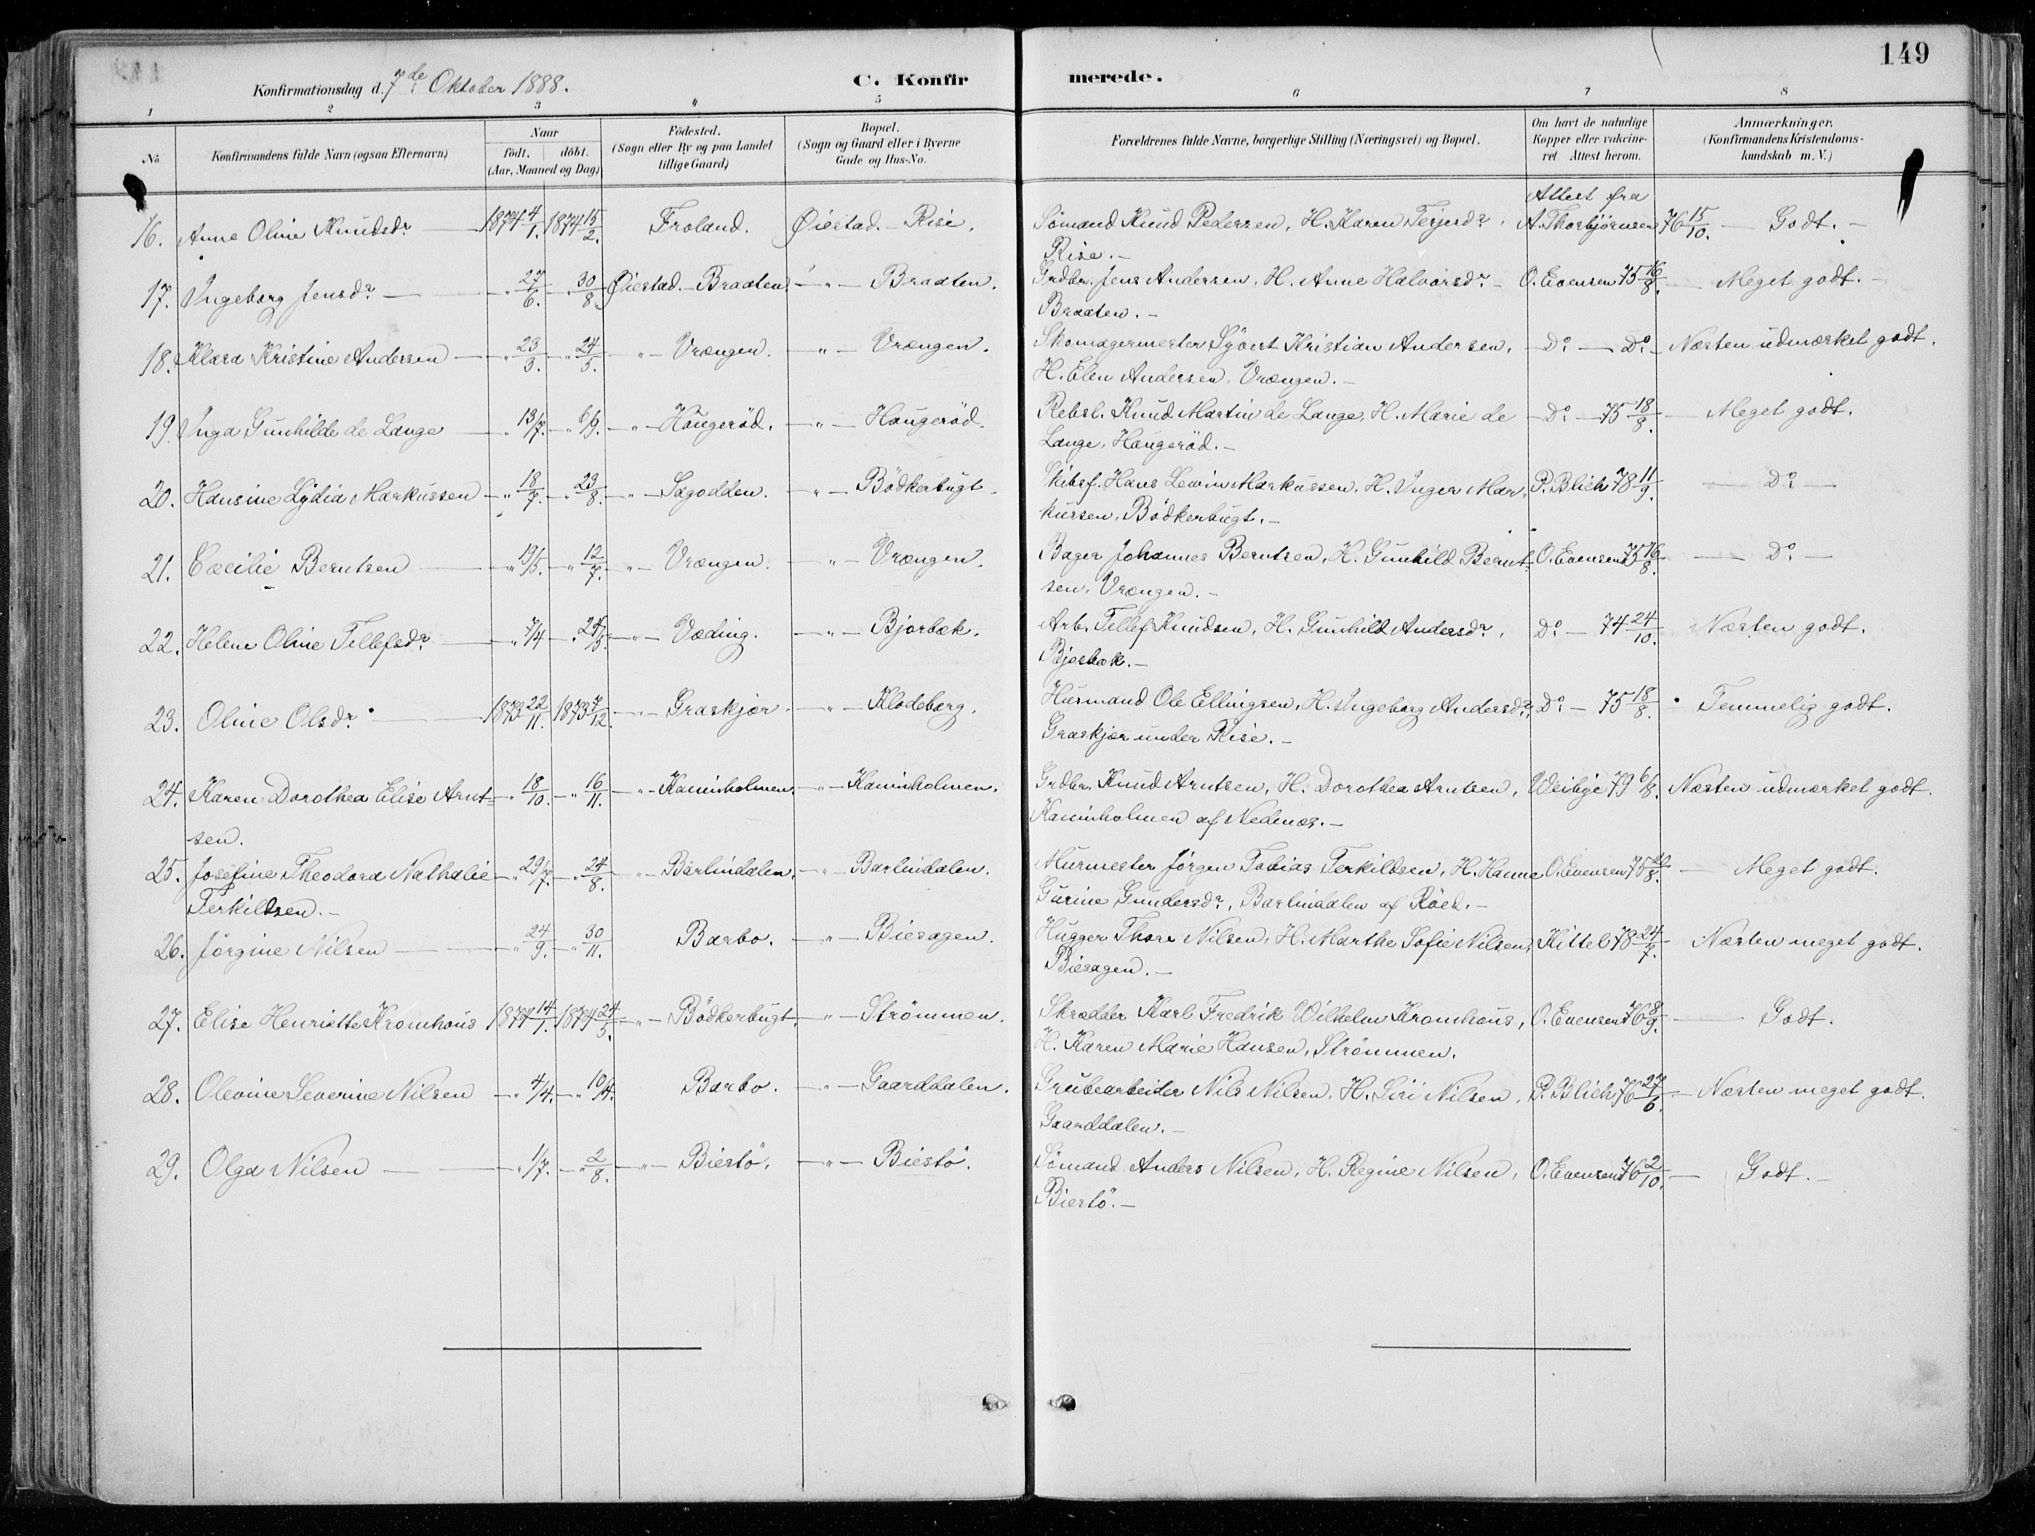 149
Konfirmationsdag d. 7de Oktober 1888.
C. Konfirmerede.
1 2 3 4 5 6 7 8
No. Konfirmandens fulde Navn (ogsaa Efternavn) Naar født. døbt. (Aar, Maaned og Dag) Fødested. (Sogn eller By og paa Landet tillige Gaard) Bopæl. (Sogn og Gaard eller i Byerne Gade og Hus-No. Forældrenes fulde Navne, borgerlige Stilling (Næringsvei) og Bopæl. Om havt de naturlige Kopper eller vakcineret Attest herom. Anmærkninger. (Konfirmandens Kristendomskundskab m. V.)
Attest fra
16. Anne Oline Knudsdr 1874 4/1. 1874 15/2. Froland. Øiestad. - Rise. Sømand Knud Pedersen, H. Karen Terjesdr, A. Thorbjørnsen 76 15/10. - Godt. -
Rise. -
17. Ingeborg Jensdr - " 27/6. - " 30/8. Øiestad. - Braaten - " - Braaten. Grdbr. Jens Andersen, H. Anne Halvorsdr - O. Evensen 75 16/8. - Meget godt. -
Braaten. -
18. Klara Kristine Andersen - " 23/3. - " 24/5. - " - Vrængen. - " - Vrængen. Skomagermester Syvert Kristian Andersen, - Do - Do - Næsten udmærket godt.
H. Elen Andersen, Vrængen. -
19. Inga Gunhilde de Lange - " 13/7. - " 6/9. - " - Haugerød. - " - Haugerød. Rebsl. Knud Martin de Lange, H. Marie de - Do - 75 18/8. - Meget godt.
Lange, Haugerød. -
20. Hansine Lydia Markussen - " 18/7. - " 23/8. - " - Sagodden. - " - Bödkerbugt. Skibsf. Hans Lewin Markussen, H. Inger Mar- P. Blich 78 11/9. - Do -
kussen, Bödkerbugt. -
21. Cæcilie Berntsen - " 19/5. - " 12/7. - " - Vrængen. - " - Vrængen. Bager Johannes Berntsen, H. Gunhild Bernt- O. Evensen 75 16/8. - Do -
sen, Vrængen. -
22. Helene Oline Tellefsdr - " 7/4 - " 24/5. - " - Væding. - " - Bjorbæk. Arb. Tellef Knudsen, H. Gunhild Andersdr, Do - 74 24/10. Næsten godt.
Bjorbæk. -
23. Oline Olsdr. - 1873 22/11. 1873 7/12. - " - Graskjær. - " - Klodeborg. Husmand Ole Ellingsen, H. Ingeborg Andersdr, Do - 75 18/8. Temmelig godt.
Graskjær under Rise. -
24. Karen Dorothea Elise Arnt- - " 18/10. - " 16/11. - " - Kaninholmen. - " - Kaninholmen. Grdbr. Knud Arntsen, H. Dorothea Arntsen, Weibye 79 6/8. Næsten udmærket godt.
sen. Kaninholmen af Nedenæs. -
25. Josefine Theodora Nathalie - " 29/7. - " 24/8. - " - Barlindalen. - " - Barlindalen. Murmester Jørgen Tobias Terkildsen, H. Hanne O. Evensen 75 20/8. - Meget godt.
Terkildsen. - Gurine Gundersdr, Barlindalen af Röed. -
26. Jørgine Nilsen - " 24/9. - " 30/11. Barbo. - " - Biesagen. Hugger Thore Nilsen, H. Marthe Sofie Nilsen, Kittel 78 24/7. - Næsten meget godt.
Biesagen. -
27. Elise Henriette Kromhous 1874 14/1. 1874 24/5. - " - Bödkerbugt. - " - Strømmen. Skrædder Karl Fredrik Wilhelm Kromhous, O. Evensen 76 8/9. - Godt.
H. Karen Marie Hansen, Strømmen.
28. Olevine Severine Nilsen - " 4/4. - " 10/4. Barbo. - " - Gaarddalen. Grubearbeider Nils Nilsen, H. Siri Nilsen, P. Blich 76 27/6. - Næsten meget godt.
Gaarddalen. -
29. Olga Nilsen - " 1/7. - " 2/8. - " - Biestö. - " - Biestö. Sømand Anders Nilsen, H. Regine Nilsen, O. Evensen 76 2/10. - Godt. -
Biestö. -